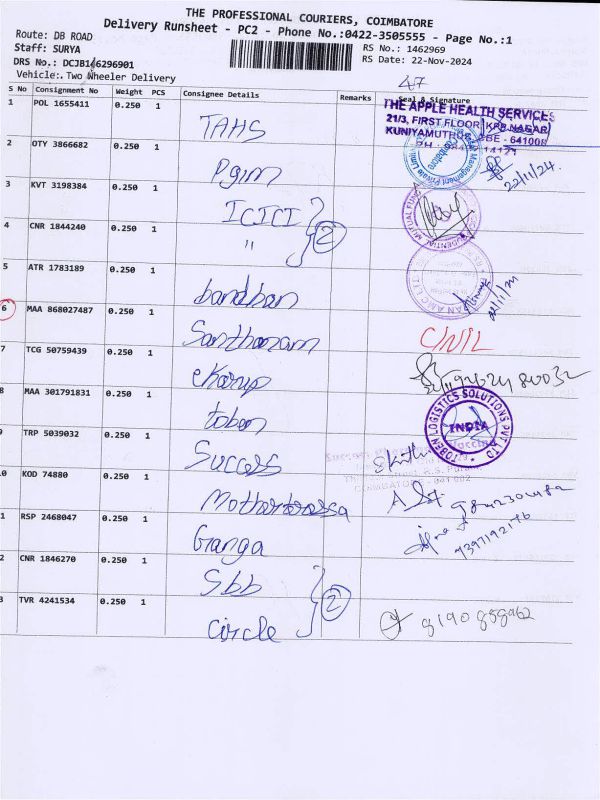 THE PROFESSIONAL COURIERS, COIMBATORE
Delivery Runsheet - PC2 - Phone No.:0422-3505555 - Page No.:1
Route: DB ROAD
Staff: SURYA
RS No.: 1462969
DRS No.: DCJB146296901
RS Date: 22-Nov-2024
Vehicle:. Two Wheeler Delivery
47
S No Consignment No Weight PCS Consignee Details Remarks Seal & Signature
1 POL 1655411 0.250 1 TAHS
THE APPLE HEALTH SERVICES
21/3, FIRST FLOOR, KPB NAGAR
KUNIYAMUTHUR, CBE - 641008
2 OTY 3866682 0.250 1 Pgim
22/11/24.
3 KVT 3198384 0.250 1 ICICI
4 CNR 1844240 0.250 1 " 2
5 ATR 1783189 0.250 1 bandhan
6 MAA 868027487 0.250 1 Santhanam C/NIL
7 TCG 50759439 0.250 1 ekarup
8 MAA 301791831 0.250 1 toben
TOBEN LOGISTICS SOLUTIONS PVT LTD
INDIA
9 TRP 5039032 0.250 1 Success
COIMBATORE - 641 002
0 KOD 74880 0.250 1
1 RSP 2468047 0.250 1 Ganga
9397192176
2 CNR 1846270 0.250 1 Sbb
3 TVR 4241534 0.250 1 Circle 2